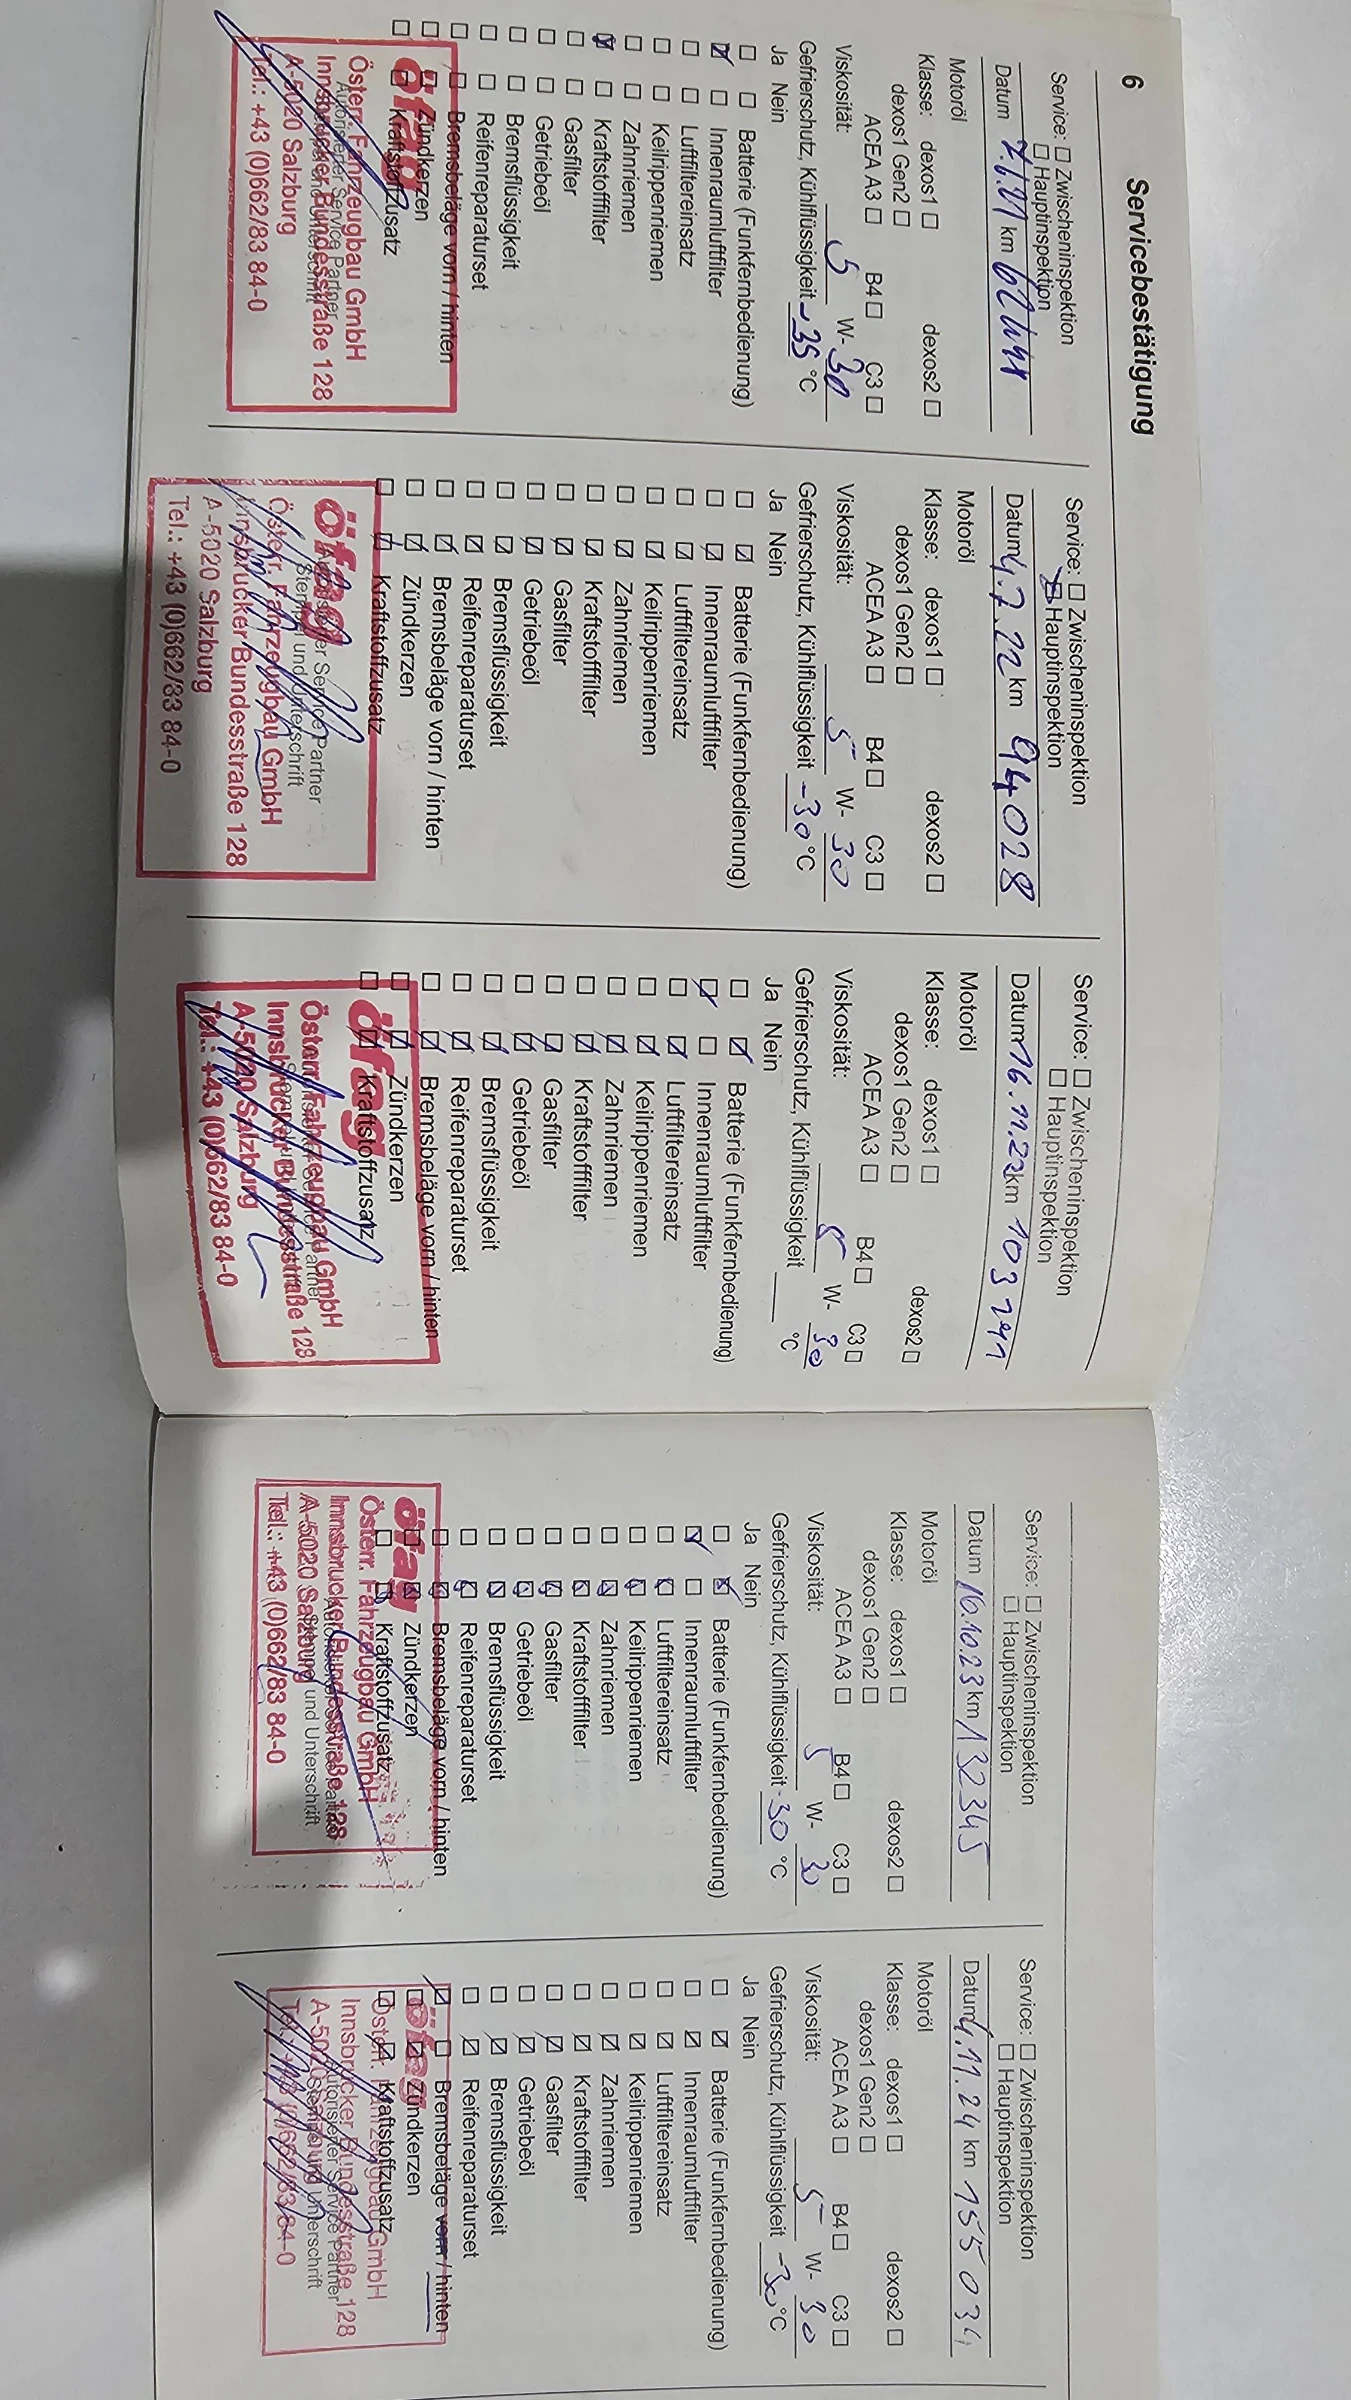 6 Servicebestätigung
Service: ☐ Zwischeninspektion
☐ Hauptinspektion
Datum km
Motoröl
Klasse: dexos1 ☐ dexos2 ☐
dexos1 Gen2 ☐
ACEA A3 ☐ B4 ☐ C3 ☐
Viskosität: 5 W- 30
Gefrierschutz, Kühlflüssigkeit -35 °C
Ja Nein
☐ ☐ Batterie (Funkfernbedienung)
☑ ☐ Innenraumluftfilter
☐ ☐ Luftfiltereinsatz
☐ ☐ Keilrippenriemen
☐ ☐ Zahnriemen
☑ ☐ Kraftstofffilter
☐ ☐ Gasfilter
☐ ☐ Getriebeöl
☐ ☐ Bremsflüssigkeit
☐ ☐ Reifenreparaturset
☐ ☐ Bremsbeläge vorn / hinten
☐ ☐ Zündkerzen
☐ ☐ Kraftstoffzusatz
öfag
Österr. Fahrzeugbau GmbH
Autorisierter Service Partner
Innsbrucker Bundesstraße 128
Stempel und Unterschrift
A-5020 Salzburg
Tel.: +43 (0)662/83 84-0
Service: ☐ Zwischeninspektion
☒ Hauptinspektion
Datum 4.7.22 km 94028
Motoröl
Klasse: dexos1 ☐ dexos2 ☐
dexos1 Gen2 ☐
ACEA A3 ☐ B4 ☐ C3 ☐
Viskosität: 5 W- 30
Gefrierschutz, Kühlflüssigkeit -30 °C
Ja Nein
☐ ☑ Batterie (Funkfernbedienung)
☐ ☑ Innenraumluftfilter
☐ ☑ Luftfiltereinsatz
☐ ☑ Keilrippenriemen
☐ ☑ Zahnriemen
☐ ☑ Kraftstofffilter
☐ ☑ Gasfilter
☐ ☑ Getriebeöl
☐ ☑ Bremsflüssigkeit
☐ ☑ Reifenreparaturset
☐ ☑ Bremsbeläge vorn / hinten
☐ ☑ Zündkerzen
☐ ☑ Kraftstoffzusatz
öfag
Autorisierter Service Partner
Stempel und Unterschrift
Österr. Fahrzeugbau GmbH
Innsbrucker Bundesstraße 128
A-5020 Salzburg
Tel.: +43 (0)662/83 84-0
Service: ☐ Zwischeninspektion
☐ Hauptinspektion
Datum 16.11.22 km 103241
Motoröl
Klasse: dexos1 ☐ dexos2 ☐
dexos1 Gen2 ☐
ACEA A3 ☐ B4 ☐ C3 ☐
Viskosität: 5 W- 30
Gefrierschutz, Kühlflüssigkeit °C
Ja Nein
☐ ☑ Batterie (Funkfernbedienung)
☑ ☐ Innenraumluftfilter
☐ ☑ Luftfiltereinsatz
☐ ☑ Keilrippenriemen
☐ ☑ Zahnriemen
☐ ☑ Kraftstofffilter
☐ ☑ Gasfilter
☐ ☑ Getriebeöl
☐ ☑ Bremsflüssigkeit
☐ ☑ Reifenreparaturset
☐ ☑ Bremsbeläge vorn / hinten
☐ ☑ Zündkerzen
☐ ☑ Kraftstoffzusatz
öfag
Österr. Fahrzeugbau GmbH
Innsbrucker Bundesstraße 128
A-5020 Salzburg
Tel.: +43 (0)662/83 84-0
Service: ☐ Zwischeninspektion
☐ Hauptinspektion
Datum 16.10.23 km 132345
Motoröl
Klasse: dexos1 ☐ dexos2 ☐
dexos1 Gen2 ☐
ACEA A3 ☐ B4 ☐ C3 ☐
Viskosität: 5 W- 30
Gefrierschutz, Kühlflüssigkeit -30 °C
Ja Nein
☐ ☑ Batterie (Funkfernbedienung)
☑ ☐ Innenraumluftfilter
☐ ☑ Luftfiltereinsatz
☐ ☑ Keilrippenriemen
☐ ☑ Zahnriemen
☐ ☑ Kraftstofffilter
☐ ☑ Gasfilter
☐ ☑ Getriebeöl
☐ ☑ Bremsflüssigkeit
☐ ☑ Reifenreparaturset
☐ ☑ Bremsbeläge vorn / hinten
☐ ☑ Zündkerzen
☐ ☑ Kraftstoffzusatz
öfag
Österr. Fahrzeugbau GmbH
Innsbrucker Bundesstraße 128
A-5020 Salzburg
Stempel und Unterschrift
Tel.: +43 (0)662/83 84-0
Service: ☐ Zwischeninspektion
☐ Hauptinspektion
Datum 4.11.24 km 155034
Motoröl
Klasse: dexos1 ☐ dexos2 ☐
dexos1 Gen2 ☐
ACEA A3 ☐ B4 ☐ C3 ☐
Viskosität: 5 W- 30
Gefrierschutz, Kühlflüssigkeit -30 °C
Ja Nein
☐ ☑ Batterie (Funkfernbedienung)
☐ ☑ Innenraumluftfilter
☐ ☑ Luftfiltereinsatz
☐ ☑ Keilrippenriemen
☐ ☑ Zahnriemen
☐ ☑ Kraftstofffilter
☐ ☑ Gasfilter
☐ ☑ Getriebeöl
☐ ☑ Bremsflüssigkeit
☐ ☑ Reifenreparaturset
☑ ☐ Bremsbeläge vorn / hinten
☐ ☑ Zündkerzen
☐ ☑ Kraftstoffzusatz
öfag
Österr. Fahrzeugbau GmbH
Innsbrucker Bundesstraße 128
Autorisierter Service Partner
Stempel und Unterschrift
A-5020 Salzburg
Tel.: +43 (0)662/83 84-0